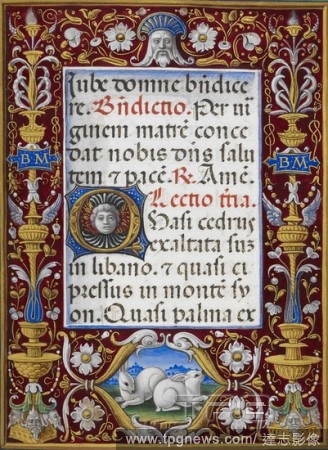 Iube domne bñdice
re. Bñdictio. Per vir
ginem matrẽ conce
dat nobis dñs salu
tem ⁊ pacẽ. R. Amẽ.
Lectio t̃tia.
BM
BM
Quasi cedrus
exaltata suz
in libano. ⁊ quasi ci
pressus in monte sy
on. Quasi palma ex
www.tpgnews.com / 達志影像